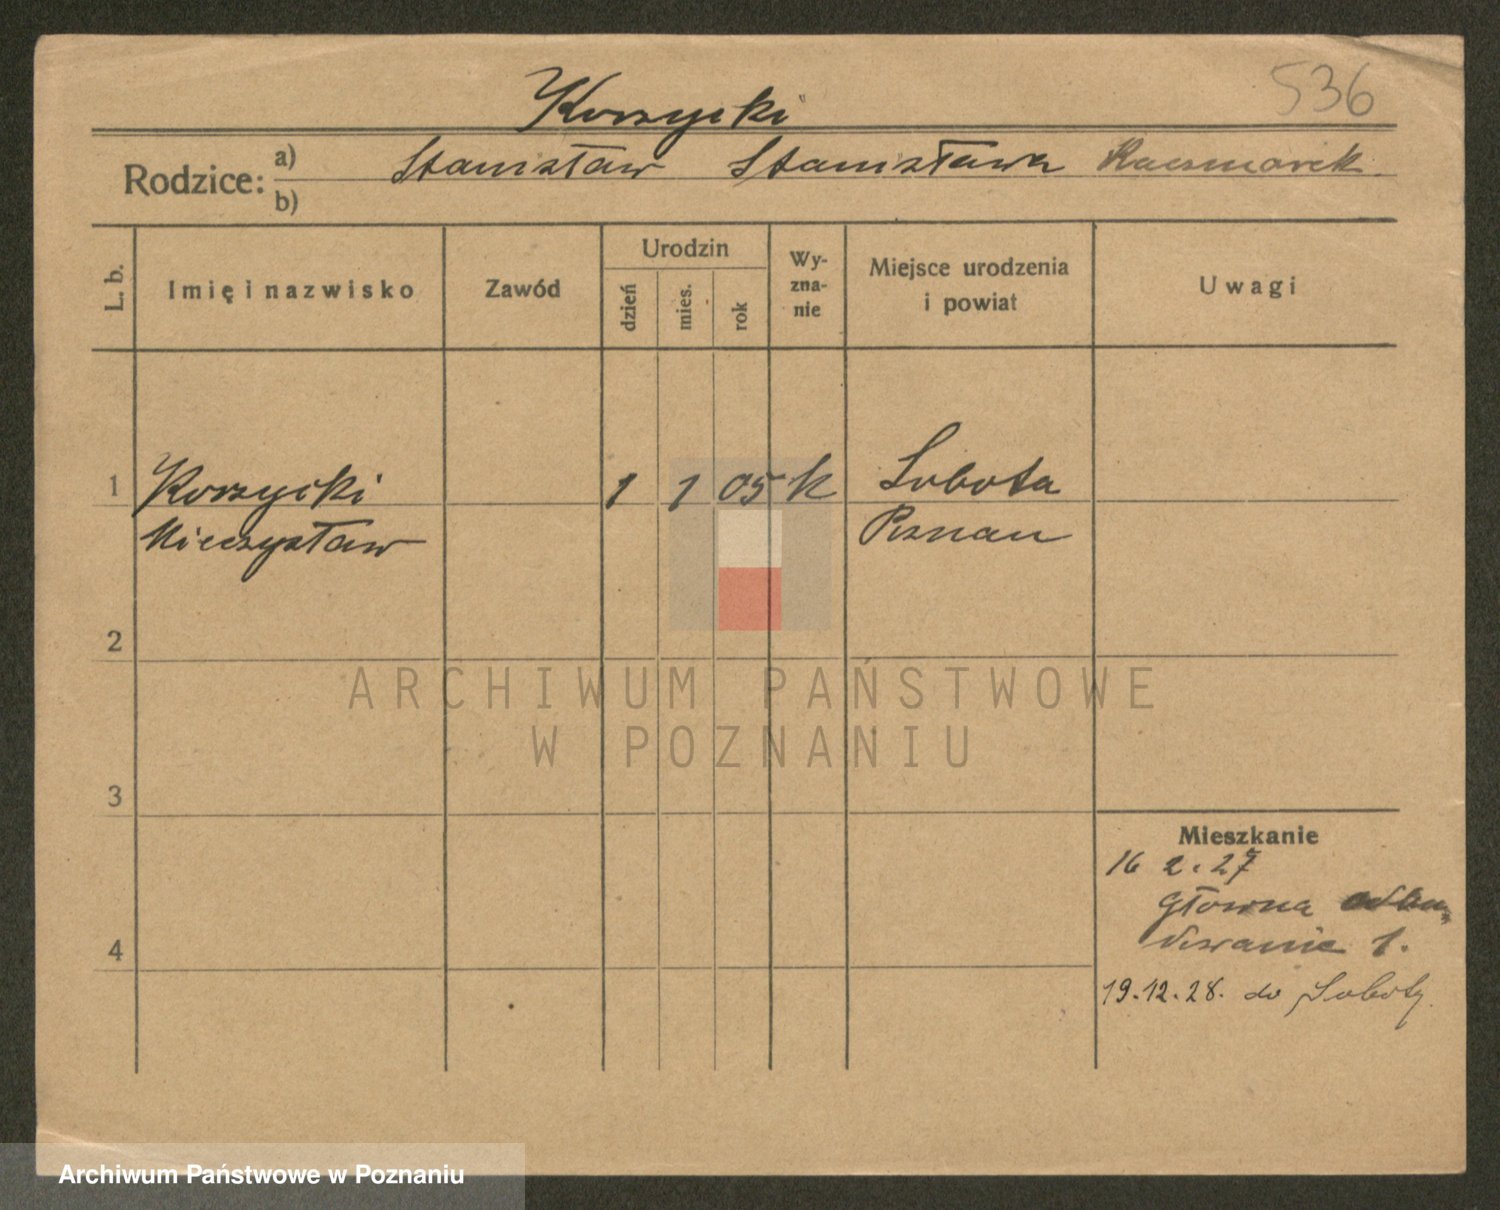 536
Korzycki
Rodzice: a) Stanisław Stanisława Kaczmarek
b)
L. b. Imię i nazwisko Zawód Urodzin dzień mies. rok Wy-zna-nie Miejsce urodzenia i powiat Uwagi
1 Korzycki 1 1 05 k Sobota
Mieczysław Poznan
2
ARCHIWUM PAŃSTWOWE
W POZNANIU
3
Mieszkanie
16 2. 27
Główna
4
1.
19.12.28. do Soboty.
Archiwum Państwowe w Poznaniu